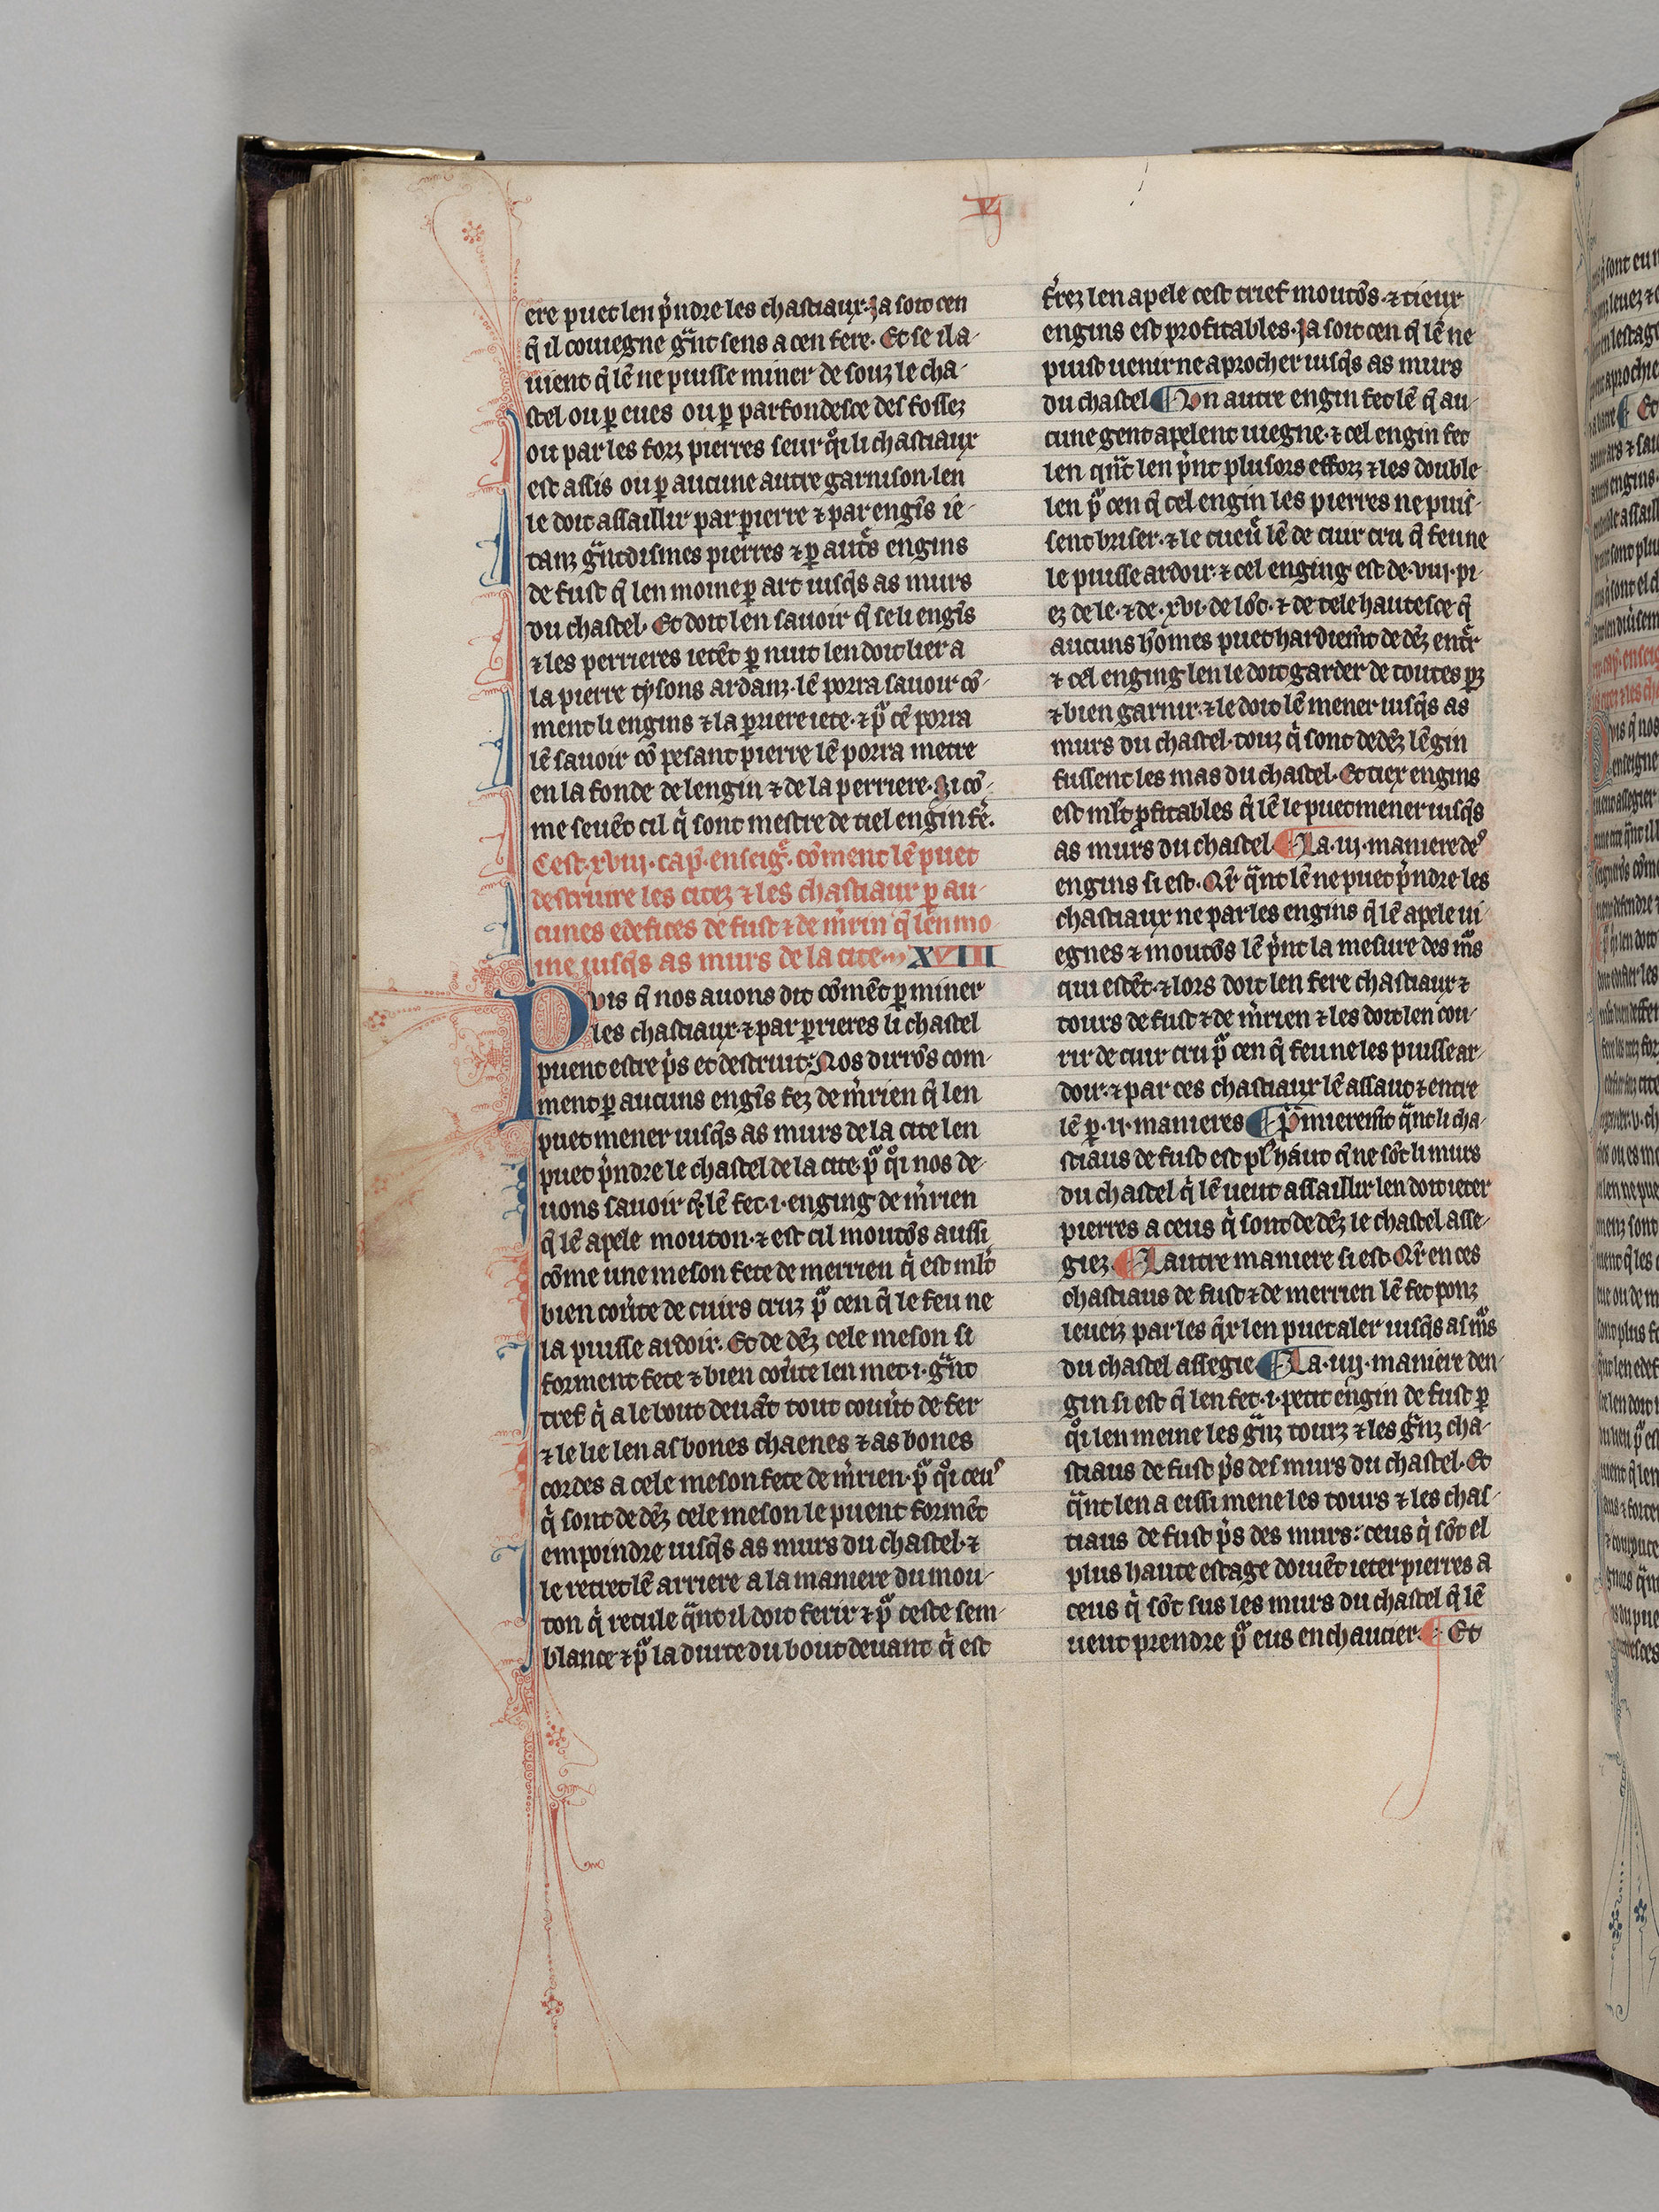 vj
ere puet len p̾ndre les chastiaux· Ja soit cen
q̄ il couiegne gᷓnt sens a cen fere· Et se il a-
uient q̄ lē ne puisse miner de souz le cha-
stel ou ꝑ eues ou ꝑ parfondesce des fossez
ou par les forz pierres seur qͦi li chastiaux
est assis ou ꝑ aucune autre garnison· len
le doit assaillir par pierre ⁊ par engīs ie-
tanz gᷓntdismes pierres ⁊ ꝑ autͤs engins
de fust q̄ len moine ꝑ art iusq̄s as murs
du chastel· Et doit len sauoir q̄ se li engīs
⁊ les perrieres ietēt ꝑ nuit len doit lier a
la pierre tysons ardanz· lē porra sauoir cō-
ment li engins ⁊ la ꝑriere iete· ⁊ pᷓ cē porra
lē sauoir cō pesant pierre lē porra metre
en la fonde de lengin ⁊ de la perriere· Si cō-
me seuēt cil qͥ sont mestre de tiel engin fe᷑·
Cest· xviij· cap̄· enseig̾· cōment lē puet
destruire les citez ⁊ les chastiaux ꝑ au-
cunes edefices de fust ⁊ de m̾rin q̄ len mo
ine iusq̄s as murs de la cite··· XVIII
Puis q̄ nos auons dit cōmēt ꝑ miner
les chastiaux· ⁊ par ꝑrieres li chastel
puent estre p̾s et destruit· Nos dirōs com-
ment ꝑ aucuns engīs fez de m̾rien q̄ len
puet mener iusq̄s as murs de la cite len
puet p̾ndre le chastel de la cite· pᷓ qͦi nos de-
uons sauoir q̄ lē fet· i· enging de m̾rien
q̄ lē apele mouton· ⁊ est cil moutōs aussi
cōme une meson fete de merrien qͥ est ml̄t
bien cou̾te de cuirs cruz pᷓ cen q̄ le feu ne
la puisse ardoir· Et de dēz cele meson si
forment fete ⁊ bien cou̾te len met· i· gᷓnt
tref qͥ a le bout deuāt tout cou̾t de fer
⁊ le lie len as bones chaenes ⁊ as bones
cordes a cele meson fete de m̾rien· pᷓ qͦi ceuˢ
qͥ sont de dēz cele meson le puent formēt
empoindre iusq̄s as murs du chastel· ⁊
le retret lē arriere a la maniere du mou-
ton qͥ recule qᷓnt il doit ferir ⁊ pᷓ ceste sem-
blance ⁊ pᷓ la durte du bout deuant qͥ est
fe᷑rez len apele cest trief moutōs· ⁊ tieux
engins est profitables· Ja soit cen q̄ lē ne
puist uenir ne aprocher iusq̄s as murs
du chastel ¶ Un autre engin fet lē q̄ au-
cune gent apelent uiegne· ⁊ cel engin fet
len qᷓnt len p̾nt plusors efforz ⁊ les double
len pᷓ cen q̄ cel engin les pierres ne puis-
sent briser· ⁊ le cueu᷑ lē de cuir cru q̄ feu ne
le puisse ardoir· ⁊ cel enging est de· viij· pi-
ez de le· ⁊ de· xvi· de lōc· ⁊ de tele hautesce q̄
aucuns hōmes puet hardiem̄t de dēz ent᷑r
⁊ cel enging len le doit garder de toutes ꝑz
⁊ bien garnir· ⁊ le doit lē mener iusq̄s as
murs du chastel· touz qͥ sont de dēz lēgin
fussent les mas du chastel· Et tiex engins
est ml̄t ꝓfitables q̄ lē le puet mener iusq̄s
as murs du chastel· ¶ La· iij· maniere deˢ
engins si est· Qr̄ qᷓnt lē ne puet p̾ndre les
chastiaux ne par les engins q̄ lē apele ui-
egnes ⁊ moutōs lē p̾nt la mesure des mᷓs
qui estēt· ⁊ lors doit len fere chastiaux ⁊
tours de fust ⁊ de m̾rien ⁊ les doit len cou-
rir de cuir cru pᷓ cen q̄ feu ne les puisse ar-
doir· ⁊ par ces chastiaux lē assaut ⁊ entre
lē ꝑ· ij· manieres ¶ P̾mierem̄t qᷓnt li cha-
stiaus de fust est plˀ haut q̄ ne sōt li murs
du chastel qͥ lē ueut assaillir len doit ieter
pierres a ceus qͥ sont de dēz le chastel asse-
giez· ¶ Lautre maniere si est· Qr̄ en ces
chastiaus de fust ⁊ de merrien lē fet ponz
leueiz par les q̄x len puet aler iusq̄s as mᷓs
du chastel assegie ¶ La· iiij· maniere den-
gin si est q̄ len fet· i· petit engin de fust ꝑ
qͦi len meine les gᷓnz tourz ⁊ les gᷓnz cha-
stiaus de fust p̾s des murs du chastel· Et
qᷓnt len a eissi mene les tours ⁊ les chas-
tiaus de fust p̾s des murs: ceus qͥ sōt el
plus haute estage doiuēt ieter pierres a
ceus qͥ sōt sus les murs du chastel q̄ lē
ueut prendre pᷓ eus enchaucier· ¶ Et